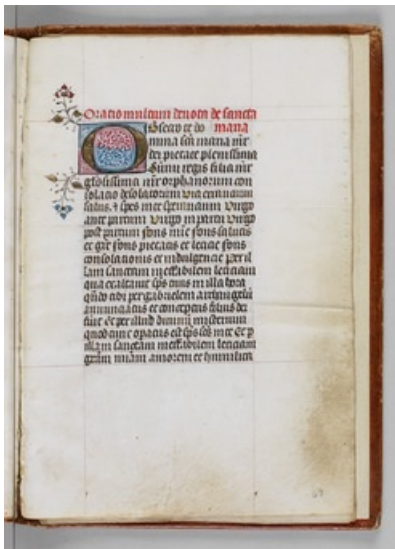 Oratio multum deuota de sancta
Obsecro te do maria
mina scā maria mr̄
dei pietate plenissima
Sūmi regis filia mr̄
gl'osissima mr̄ orphanorum con
solacio desolatorum via errancium
salus ⁊ spes in te sperancium Virgo
ante partum Virgo in partu Virgo
post partum fons mīe fons salutis
et grē fons pietatis et leticie fons
consolationis et indulgencie Per il
lam sanctam ineffabilem leticiam
qua exaltauit sp̄s tuus in illa hora
qn̄do tibi per gabrielem archangelū
annunciatus et conceptus filius dei
fuit Et per illud diuinū misterium
quod tunc operatus est sp̄s scūs in te Et p
illam sanctam ineffabilem leticiam
grām miam amorem et humilita